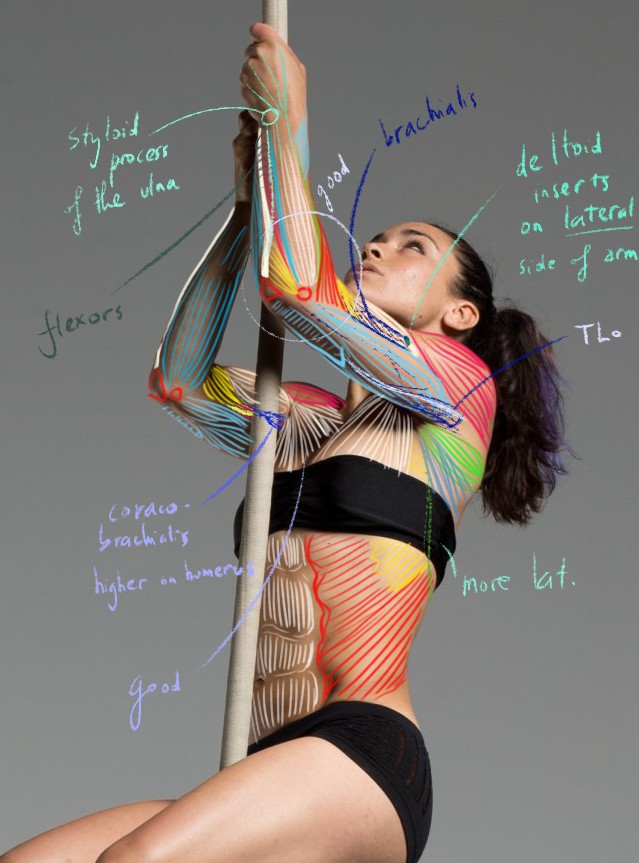 styloid
process
of the ulna
good
brachialis
deltoid
inserts
on lateral
side of arm
flexors
TLo
coraco-
brachialis
higher on humerus
more lat.
good